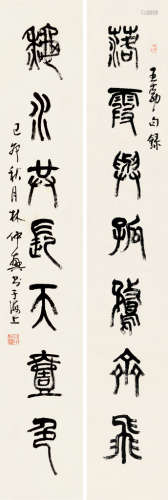 王勃句錄
落霞與孤鶩齊飛
龝水共長天壹色
己卯秋月林仲興书于海上